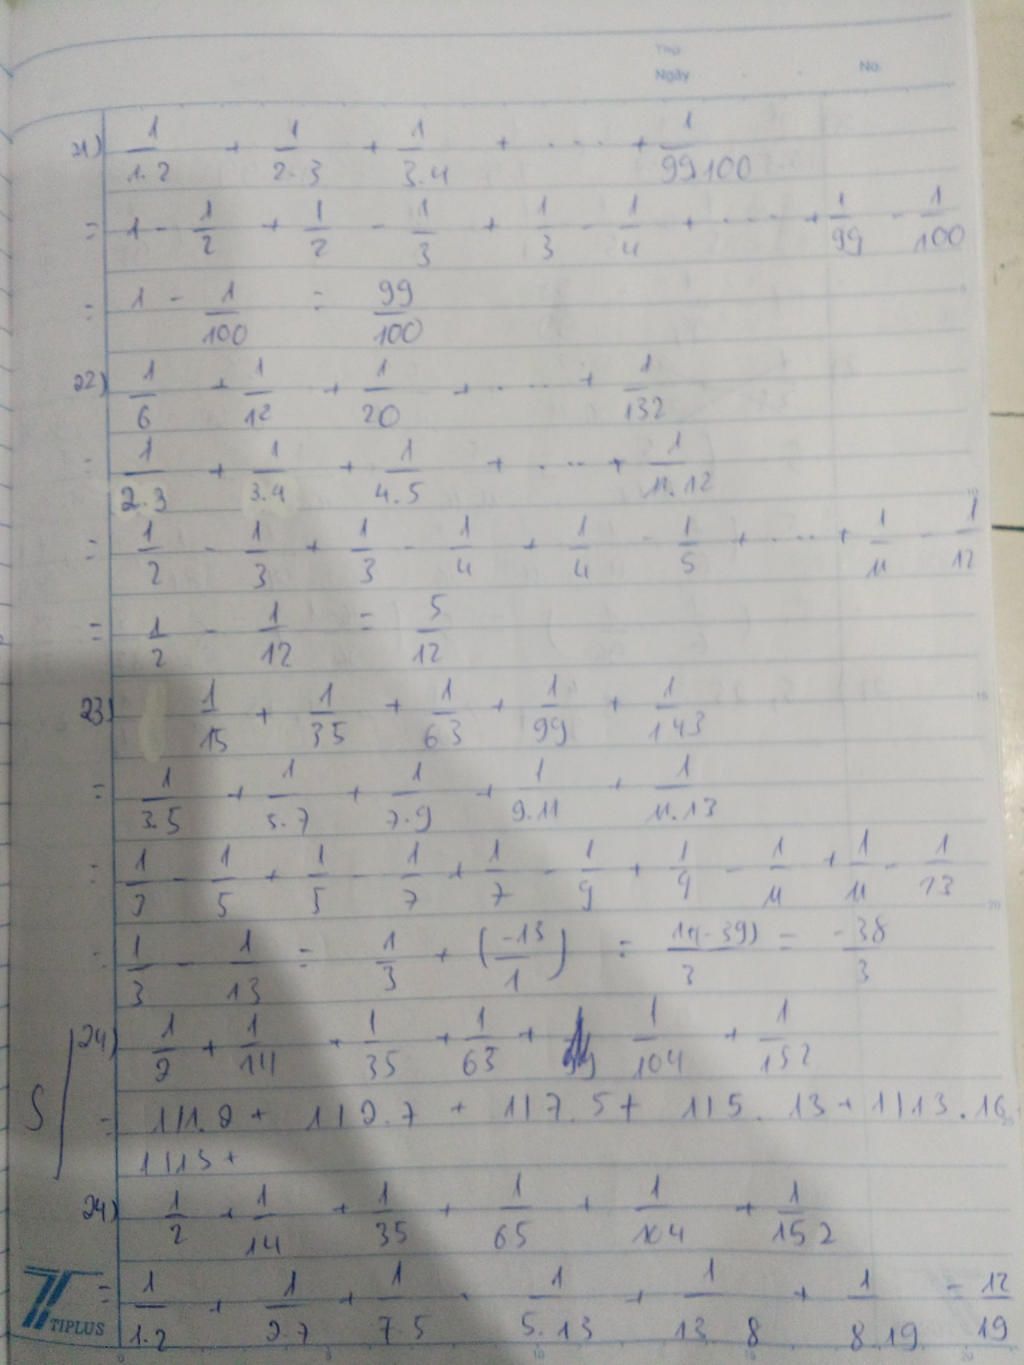 Thứ
Ngày . . No.
21) 1/1.2 + 1/2.3 + 1/3.4 + .... + 1/99.100
= 1 - 1/2 + 1/2 - 1/3 + 1/3 - 1/4 + .... + 1/99 - 1/100
= 1 - 1/100 = 99/100
22) 1/6 + 1/12 + 1/20 + .... + 1/132
= 1/2.3 + 1/3.4 + 1/4.5 + .... + 1/11.12
= 1/2 - 1/3 + 1/3 - 1/4 + 1/4 - 1/5 + .... + 1/11 - 1/12
= 1/2 - 1/12 = 5/12
23) 1/15 + 1/35 + 1/63 + 1/99 + 1/143
= 1/3.5 + 1/5.7 + 1/7.9 + 1/9.11 + 1/11.13
= 1/3 - 1/5 + 1/5 - 1/7 + 1/7 - 1/9 + 1/9 - 1/11 + 1/11 - 1/13
= 1/3 - 1/13 = 1/3 + (-13/1) = 1+(-39)/3 = -38/3
24) 1/2 + 1/14 + 1/35 + 1/63 + 1/104 + 1/152
S = 1|1.2 + 1|2.7 + 1|7.5 + 1|5.13 + 1|13.16
1|15 +
24) 1/2 + 1/14 + 1/35 + 1/65 + 1/104 + 1/152
= 1/1.2 + 1/2.7 + 1/7.5 + 1/5.13 + 1/13 8 + 1/8.19 = 12/19
TIPLUS